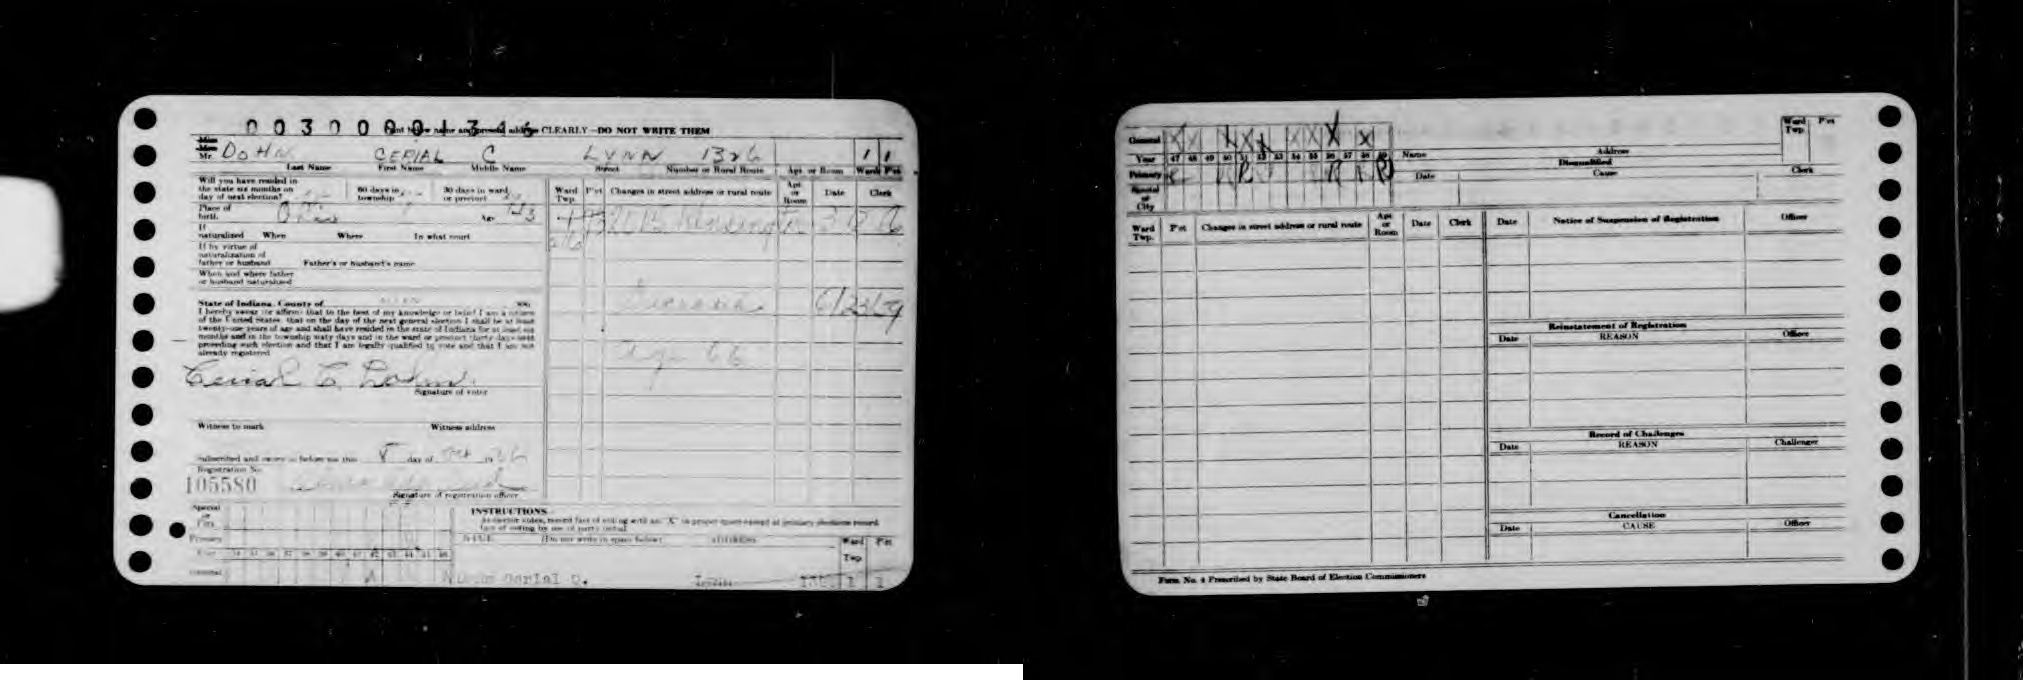 003000001346
Print below name and present address CLEARLY—DO NOT WRITE THEM
Miss
Mrs.
Mr. DOHN CERIAL C LYNN 1326 1 1
Last Name First Name Middle Name Street Number or Rural Route Apt. or Room Ward P'ct
Will you have resided in the state six months on day of next election? 60 days in township 30 days in ward or precinct
Place of birth. Ohio Age 43
If naturalized When Where In what court
If by virtue of naturalization of father or husband Father's or husband's name
When and where father or husband naturalized
State of Indiana, County of ALLEN ss:
I hereby swear (or affirm) that to the best of my knowledge or belief I am a citizen
of the United States, that on the day of the next general election I shall be at least
twenty-one years of age and shall have resided in the state of Indiana for at least six
months and in the township sixty days and in the ward or precinct thirty days next
preceding such election and that I am legally qualified to vote and that I am not
already registered
Cerial C. Dohn.
Signature of voter
Witness to mark Witness address
Subscribed and sworn to before me this 8 day of Oct 1936
Registration No.
105580
Signature of registration officer
Ward Twp. P'ct Changes in street address or rural route Apt or Room Date Clerk
2013 Kensington
Deceased 6/23/59
Age 66
Special or City
Primary
Year
General
INSTRUCTIONS
As elector votes, record fact of voting with an "X" in proper space except at primary elections record
fact of voting by use of party initial
NAME (Do not write in space below) ADDRESS Ward Twp. P'ct
Cerial C. Lynn 1 1
General X X X X X X X X X
Year 47 48 49 50 51 52 53 54 55 56 57 58 59
Primary R R R R R
Special or City
Name Address
Ward Twp. P'ct
Disqualified
Date Cause Clerk
Ward Twp. P'ct Changes in street address or rural route Apt or Room Date Clerk
Date Notice of Suspension of Registration Officer
Reinstatement of Registration
Date REASON Officer
Record of Challenges
Date REASON Challenger
Cancellation
Date CAUSE Officer
Form No. 4 Prescribed by State Board of Election Commissioners